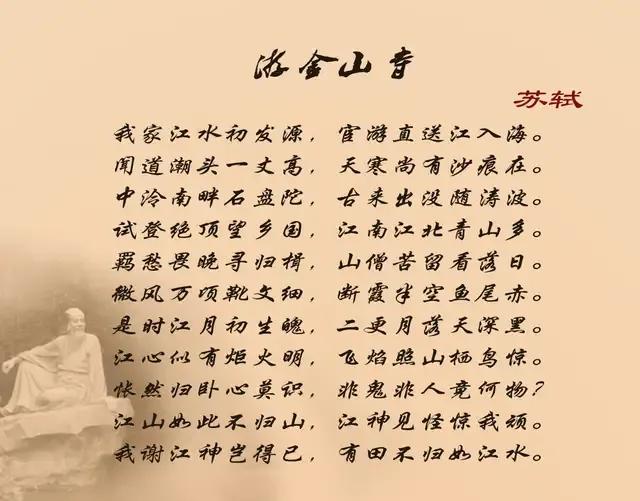 游金山寺
苏轼
我家江水初发源，官游直送江入海。
闻道潮头一丈高，天寒尚有沙痕在。
中泠南畔石盘陀，古来出没随涛波。
试登绝顶望乡国，江南江北青山多。
羁愁畏晚寻归楫，山僧苦留看落日。
微风万顷靴文细，断霞半空鱼尾赤。
是时江月初生魄，二更月落天深黑。
江心似有炬火明，飞焰照山栖鸟惊。
怅然归卧心莫识，非鬼非人竟何物？
江山如此不归山，江神见怪惊我顽。
我谢江神岂得已，有田不归如江水。